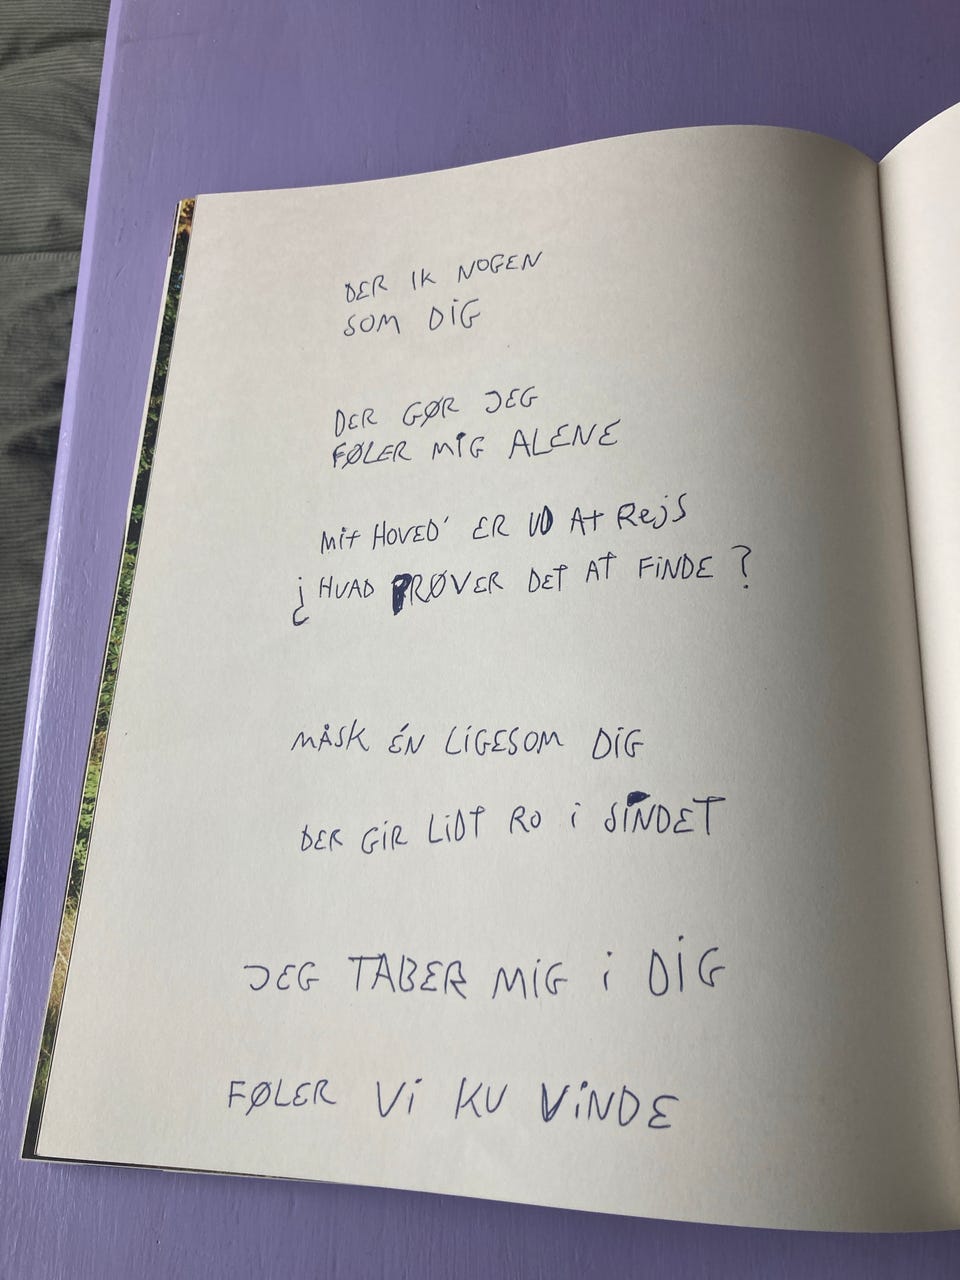 DER IK NOGEN
SOM DIG
DER GØR JEG
FØLER MIG ALENE
MIT HOVED' ER UD AT REJS
¿ HVAD PRØVER DET AT FINDE ?
MÅSK ÉN LIGESOM DIG
DER GIR LIDT RO I SINDET
JEG TABER MIG I DIG
FØLER VI KU VINDE